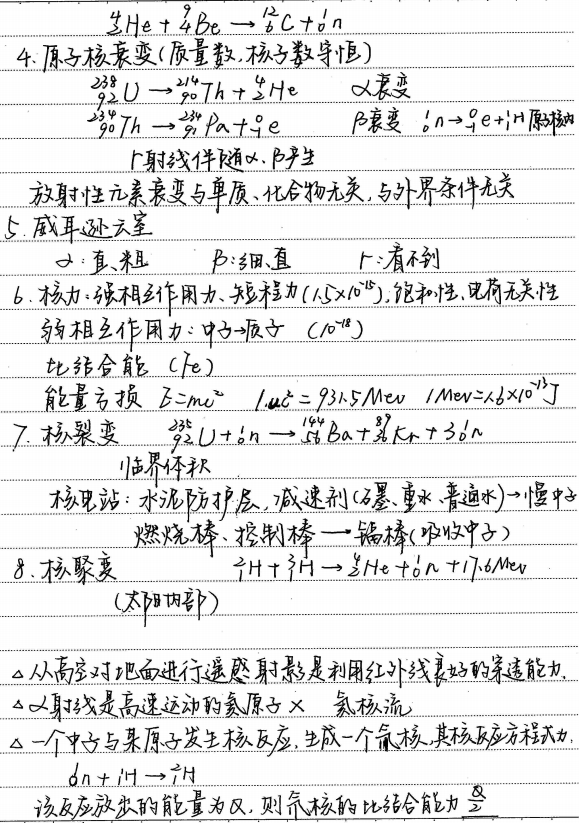 ⁴₂He + ⁹₄Be → ¹²₆C + ¹₀n
4. 原子核衰变(质量数、核子数守恒)
²³⁸₉₂U → ²¹⁴₉₀Th + ⁴₂He α衰变
²³⁴₉₀Th → ²³⁴₉₁Pa + ⁰₋₁e β衰变 ¹₀n → ⁰₋₁e + ¹₁H 原子核内
γ射线伴随α、β产生
放射性元素衰变与单质、化合物无关,与外界条件无关
5. 威耳逊云室
α:直、粗 β:细、直 γ:看不到
6. 核力:强相互作用力、短程力(1.5×10⁻¹⁵),饱和性、电荷无关性
弱相互作用力:中子→质子 (10⁻¹⁸)
比结合能 (Fe)
能量亏损 E=mc² 1uc²=931.5Mev 1Mev=1.6×10⁻¹³J
7. 核裂变 ²³⁵₉₂U + ¹₀n → ¹⁴⁴₅₆Ba + ⁸⁹₃₆Kr + 3¹₀n
临界体积
核电站:水泥防护层,减速剂(石墨、重水、普通水)→慢中子
燃烧棒、控制棒 — 镉棒(吸收中子)
8. 核聚变 ²₁H + ³₁H → ⁴₂He + ¹₀n + 17.6Mev
(太阳内部)
△从高空对地面进行遥感射影是利用红外线良好的穿透能力.
△α射线是高速运动的氦原子× 氦核流
△一个中子与某原子发生核反应,生成一个氘核,其核反应方程式为.
¹₀n + ¹₁H → ²₁H
该反应放出的能量为Q,则氘核的比结合能为 Q/2